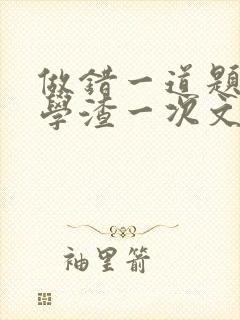 做錯一道題
學渣一次文
袖里箭